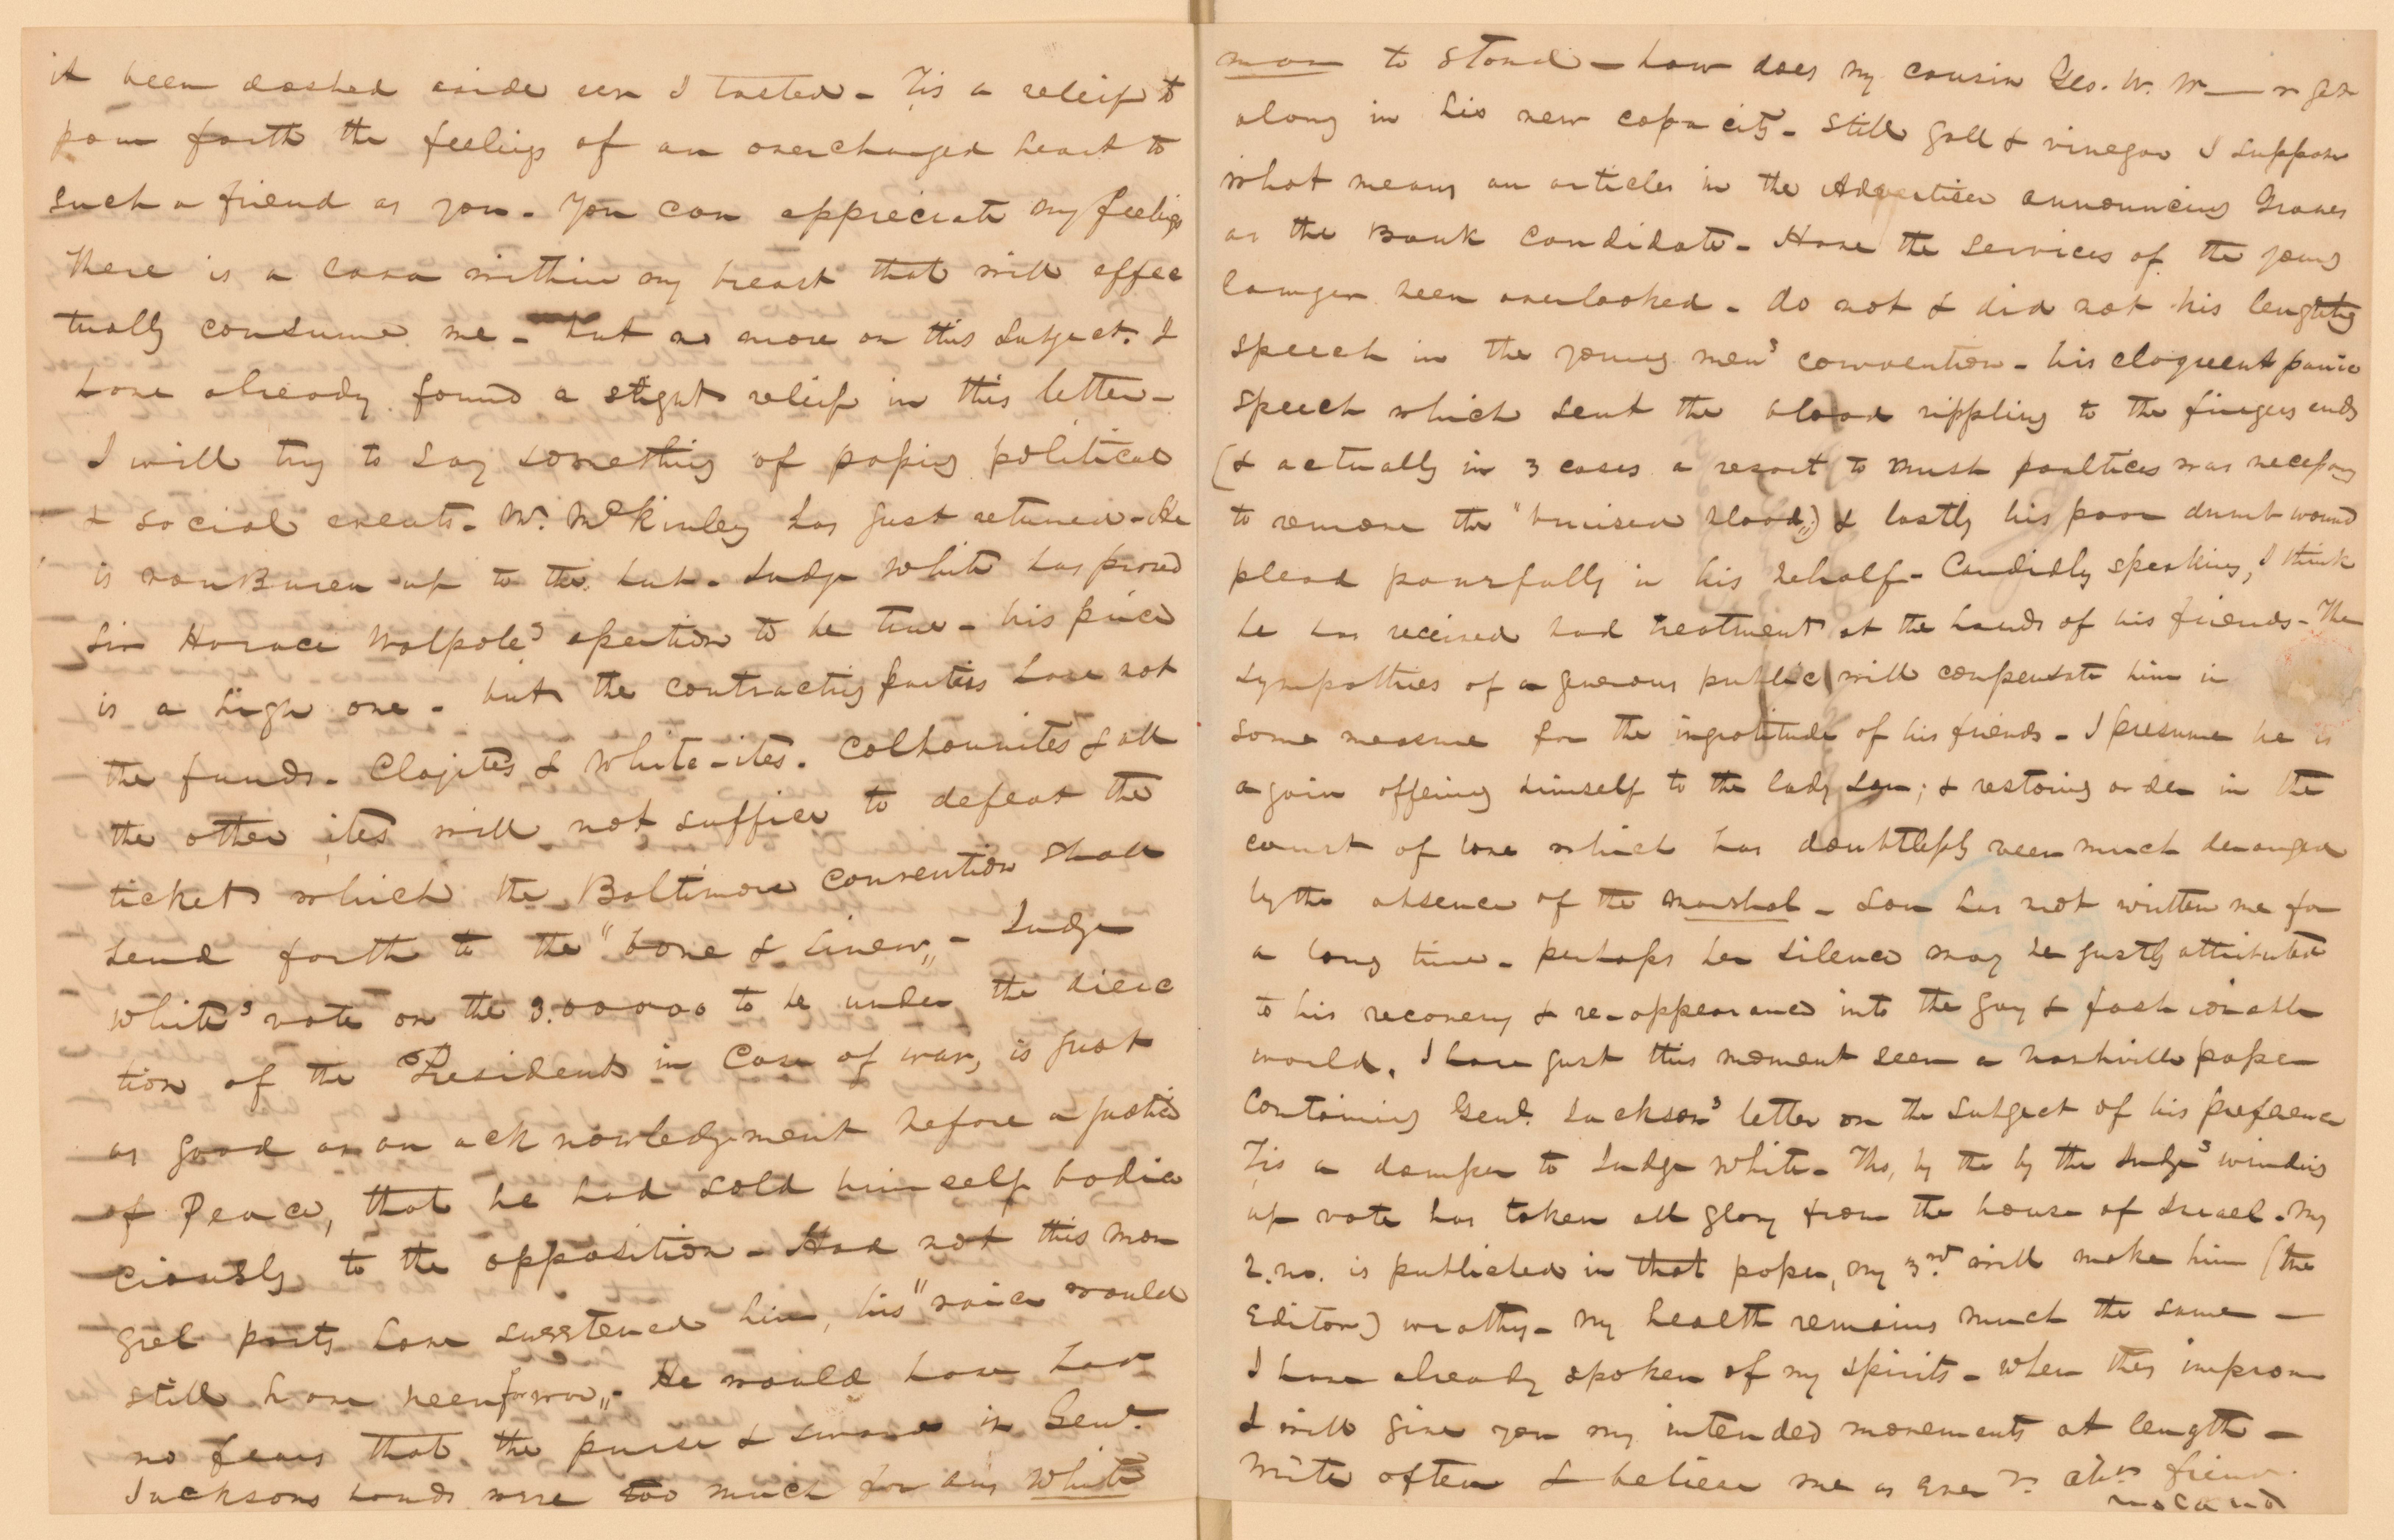 it been dashed aside ere I tasted - Tis a releif to
pour forth the feelings of an overcharged heart to
such a friend as you - You can appreciate my feelings
there is a lava within my breast that will effec
tually consume me - but no more on this subject. I
have already found a slight releif in this letter -
I will try to say something of passing political
& social events - Mr. McKinley has just returned - He
is VanBuren up to the hub - Judge White has proved
Sir Horace Walpole's assertion to be true - his price
is a high one - but the contracting parties have not
the funds - Clayites & White-ites. Calhounites & all
the other ites will not suffice to defeat the
ticket which the Baltimore Convention shall
send forth to the "bone & sinew" - Judge
White's vote on the 3.000000 to be under the direc
tion of the President in case of war, is just
as good as an acknowledgement before a justice
of Peace, that he had sold himself bodia
ciously to the opposition - Had not this mon
grel party have susstened him, his "voice would
still have been for war" - He would have had
no fears that the purse & sword in Genl.
Jacksons hands were too much for any White
man to stand - how does my cousin Geo. W. M___r get
along in his new capacity - still gall & vinegar I suppose
what means an article in the Advertiser announcing Graves
as the Bank candidate - Have the services of the young
lawyer been overlooked - do not & did not his lengthy
speech in the young men's convention - his eloquent panic
speech which sent the blood rippling to the fingers ends
(& actually in 3 cases a resort to mush poultices was necessary
to remove the "bruised blood") & lastly his poor dumb wound
plead pourfully in his behalf - Candidly speaking, I think
he has received bad treatment at the hands of his friends - The
sympathies of a generous public will compensate him in
some measure for the ingratitude of his friends - I presume he is
again offering himself to the lady Lou; & restoring order in the
court of love which has doubtlessly been much deranged
by the absence of the marshal - Lou has not written me for
a long time - perhaps her silence may be justly attributed
to his recovery & re-appearance into the gay & fashionable
world. I have just this moment seen a Nashville paper
containing Genl. Jackson's letter on the subject of his preference
Tis a damper to Judge White - Tho, by the by the Judge's winding
up vote has taken all glory from the house of Israel - My
2. no. is published in that paper, my 3rd. will make him (the
Editor) wrathy - My health remains much the same -
I have already spoken of my spirits - when they improve
I will give you my intended movements at length -
Write often & believe me as ever yr. friend